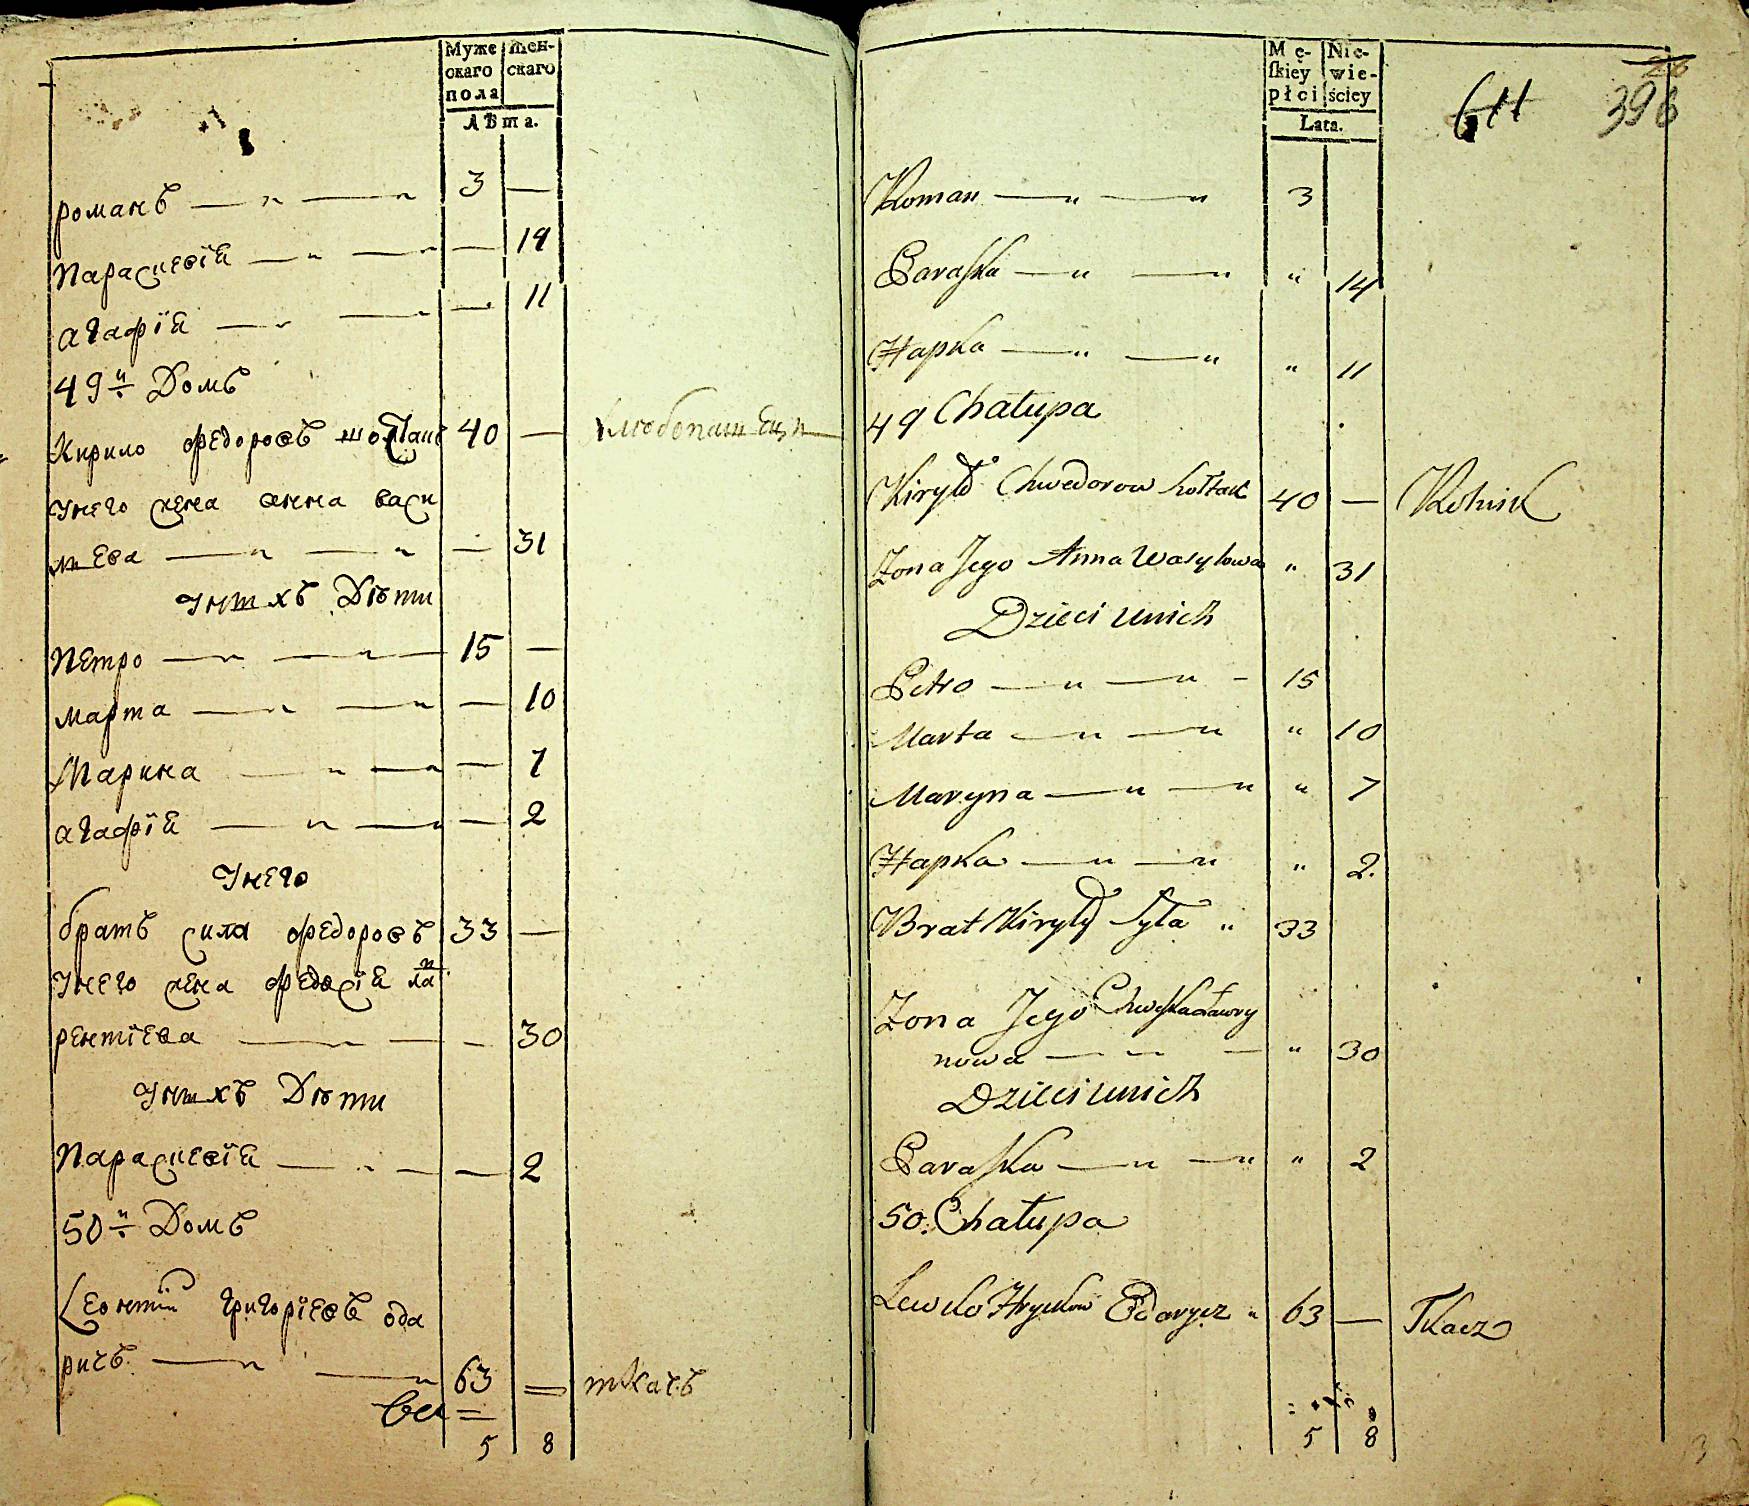 Муже Жен-
скаго скаго
пола
Лѣта.
романъ 3 —
параскевїа — 14
агафїа — 11
49й Домъ
Кирило федоровъ 40 — хлебопашец
Унего жена анна васи
лева — 31
Унихъ Дѣти
петро 15 —
марта — 10
Марина — 7
агафїа — 2
Унего
братъ сила федоровъ 33 —
Унего жена федосїа ла
рентїева — 30
Унихъ Дѣти
параскевїа — 2
50й Домъ
Леонтїй григорїевъ ода
ричъ 63 — ткачъ
5 8
Mę- Nie-
skiey wie-
płci ściey
Lata.
611 396
Roman 3
Paraska " 14
Hapka " 11
49 Chałupa
Kiryło Chwedorow Kołtak 40 — Rolnik
Zona Jego Anna Wasylowa " 31
Dzieci unich
Petro 15
Marta " 10
Maryna " 7
Hapka " 2.
Brat Kiryły Syła " 33
Zona Jego Chweska Ławry
nowa " 30
Dzieci unich
Paraska " 2
50. Chałupa
Lewko Hryckow Odarycz " 63 — Tkacz
5 8